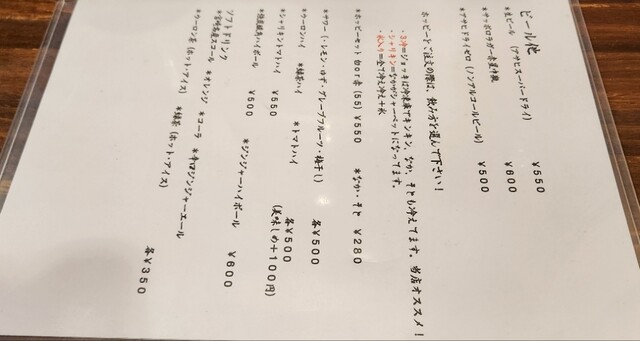 ビール他
*生ビール (アサヒスーパードライ) ¥550
*サッポロラガー赤星中瓶 ¥600
*アサヒドライゼロ (ノンアルコールビール) ¥500
ホッピーをご注文の際は、飲み方を選んで下さい!
・3冷=ジョッキは冷凍庫でキンキン、なか、そとも冷えてます。当店オススメ!
・シャリキン=なかがシャーベットになってます。
・氷入り=全て冷え冷え+氷
*ホッピーセット 白or赤 (55) ¥550 *なか・そと ¥280
*サワー (・レモン・ゆず・グレープフルーツ・梅干し) 各¥500
*ウーロンハイ *緑茶ハイ *トマトハイ 各¥500
*シャリキントマトハイ ¥550 (美味しめ+100円)
ハイボール ¥500 *ジンジャーハイボール ¥600
ソフトドリンク
*宮崎名産スコール *オレンジ *コーラ *辛口ジンジャーエール
*ウーロン茶 (ホット・アイス) *緑茶 (ホット・アイス)
各¥350